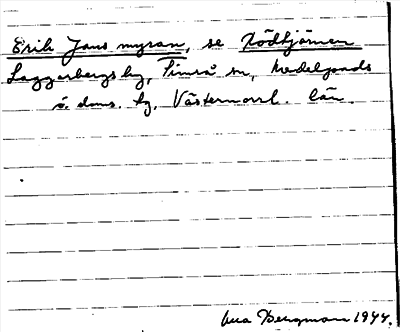 Erik Jans myran, se Rödtjärnen
Laggarbergs by, Timrå sn, Medelpads
ö. doms. hg, Västernorrl. län.
Bergman 1944.